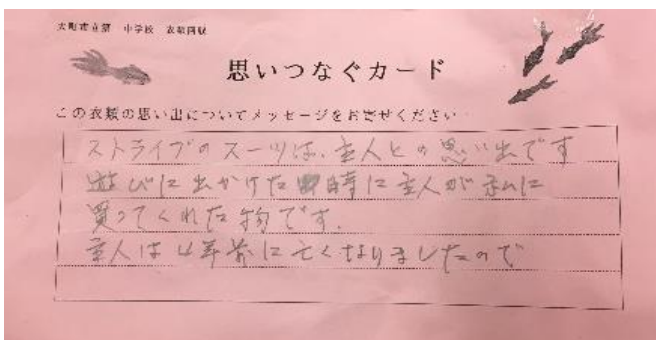 大町市立第一中学校 衣類回収
思いつなぐカード
この衣類の思い出についてメッセージをお寄せください
ストライプのスーツは、主人との思い出です
遊びに出かけた時に主人が私に
買ってくれた物です.
主人は4年前に亡くなりましたので